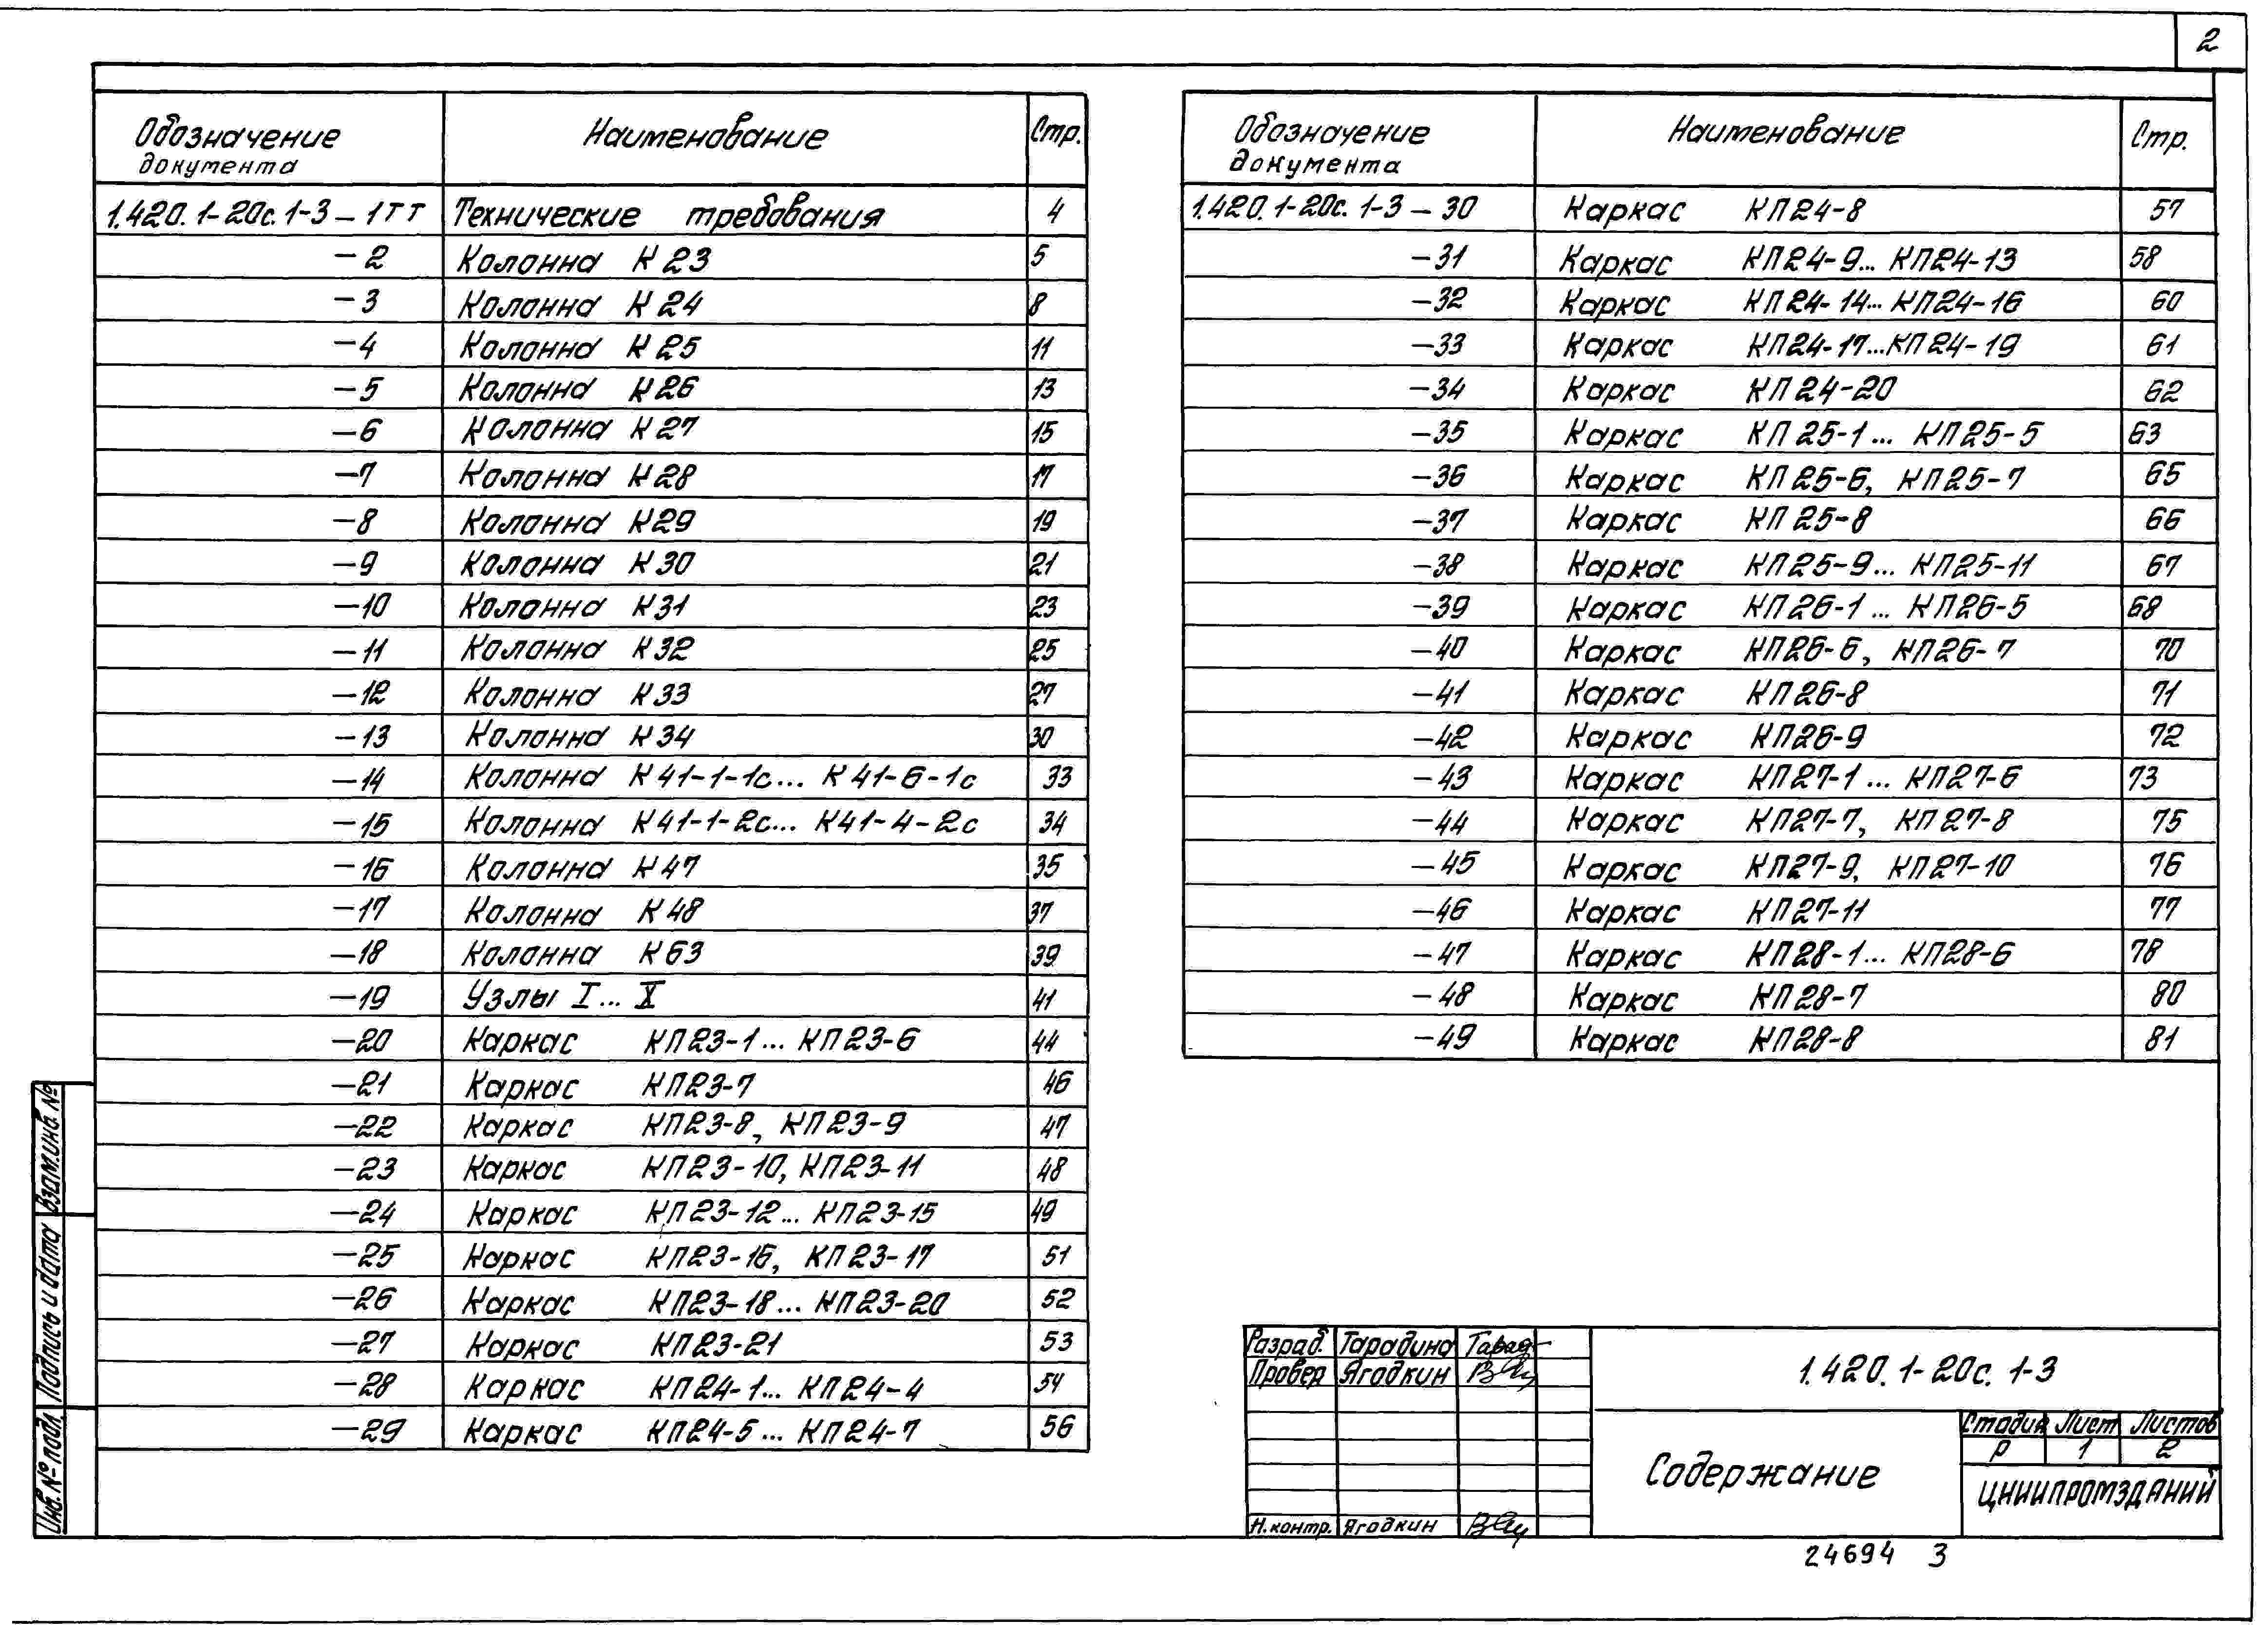 2
Обозначение документа Наименование Стр.
1.420.1-20с.1-3-1ТТ Технические требования 4
-2 Колонна К23 5
-3 Колонна К24 8
-4 Колонна К25 11
-5 Колонна К26 13
-6 Колонна К27 15
-7 Колонна К28 17
-8 Колонна К29 19
-9 Колонна К30 21
-10 Колонна К31 23
-11 Колонна К32 25
-12 Колонна К33 27
-13 Колонна К34 30
-14 Колонна К41-1-1с... К41-6-1с 33
-15 Колонна К41-1-2с... К41-4-2с 34
-16 Колонна К47 35
-17 Колонна К48 37
-18 Колонна К63 39
-19 Узлы I... X 41
-20 Каркас КП23-1... КП23-6 44
-21 Каркас КП23-7 46
-22 Каркас КП23-8, КП23-9 47
-23 Каркас КП23-10, КП23-11 48
-24 Каркас КП23-12... КП23-15 49
-25 Каркас КП23-16, КП23-17 51
-26 Каркас КП23-18... КП23-20 52
-27 Каркас КП23-21 53
-28 Каркас КП24-1... КП24-4 54
-29 Каркас КП24-5... КП24-7 56
Обозначение документа Наименование Стр.
1.420.1-20с.1-3-30 Каркас КП24-8 57
-31 Каркас КП24-9... КП24-13 58
-32 Каркас КП24-14... КП24-16 60
-33 Каркас КП24-17...КП24-19 61
-34 Каркас КП24-20 62
-35 Каркас КП25-1... КП25-5 63
-36 Каркас КП25-6, КП25-7 65
-37 Каркас КП25-8 66
-38 Каркас КП25-9... КП25-11 67
-39 Каркас КП26-1... КП26-5 68
-40 Каркас КП26-6, КП26-7 70
-41 Каркас КП26-8 71
-42 Каркас КП26-9 72
-43 Каркас КП27-1... КП27-6 73
-44 Каркас КП27-7, КП27-8 75
-45 Каркас КП27-9, КП27-10 76
-46 Каркас КП27-11 77
-47 Каркас КП28-1... КП28-6 78
-48 Каркас КП28-7 80
-49 Каркас КП28-8 81
Взам.инв.№
Подпись и дата
Инв.№ подл.
Разраб. Тарадина Тарад
Провер Ягодкин
Н.контр. Ягодкин
1.420.1-20с.1-3
Содержание
Стадия Лист Листов
Р 1 2
ЦНИИПРОМЗДАНИЙ
24694 3